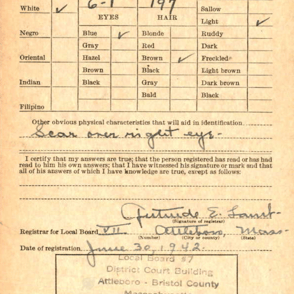 6-1 197
White ✓ EYES HAIR Sallow
Light ✓
Negro Blue ✓ Blonde Ruddy
Gray Red Dark
Oriental Hazel Brown ✓ Freckled
Brown Black Light brown
Indian Black Gray Dark brown
Bald Black
Filipino
Other obvious physical characteristics that will aid in identification
Scar over right eye.
I certify that my answers are true; that the person registered has read or has had
read to him his own answers; that I have witnessed his signature or mark and that
all of his answers of which I have knowledge are true, except as follows:
Gertrude E.
(Signature of registrar)
Registrar for Local Board VII Attleboro, Mass
(Number) (City or county)
Date of registration June 30, 1942.
Local Board #7
District Court Building
Attleboro - Bristol County
Massachusetts